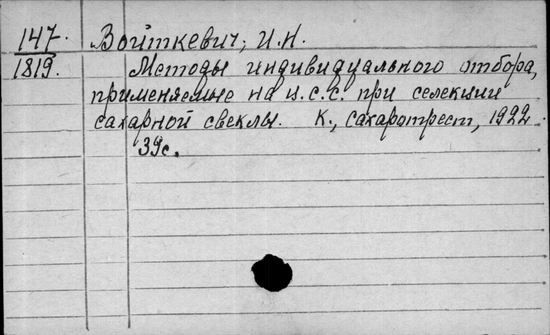 147. Войткевич, И.Н.
1819. Методы индивидуального отбора,
применяемые на и.с.с. при селекции
сахарной свеклы. К., Сахаротрест, 1922.
39с.